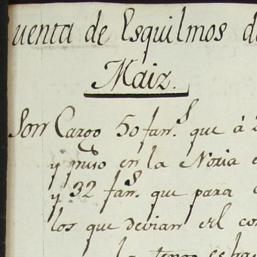 uenta de Esquilmos d
Maiz.
Son Cargo 50 fan.s que á 2
y puso en la Noria e
y 32 fan.s que para
los que devian el co
la tengo